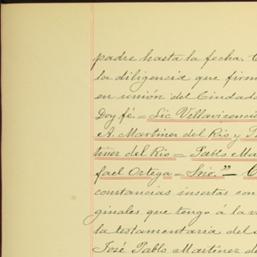 padre hasta la fecha.
la diligencia que firm
en unión del Ciudad
Doy fé.= Lic Villavicenci
A. Martinez del Rio y
tinez del Rio = Pablo Ma
fael Ortega = Srio."=
constancias insertas con
ginales que tengo á la v
la testamentaria del
José Pablo Martinez d